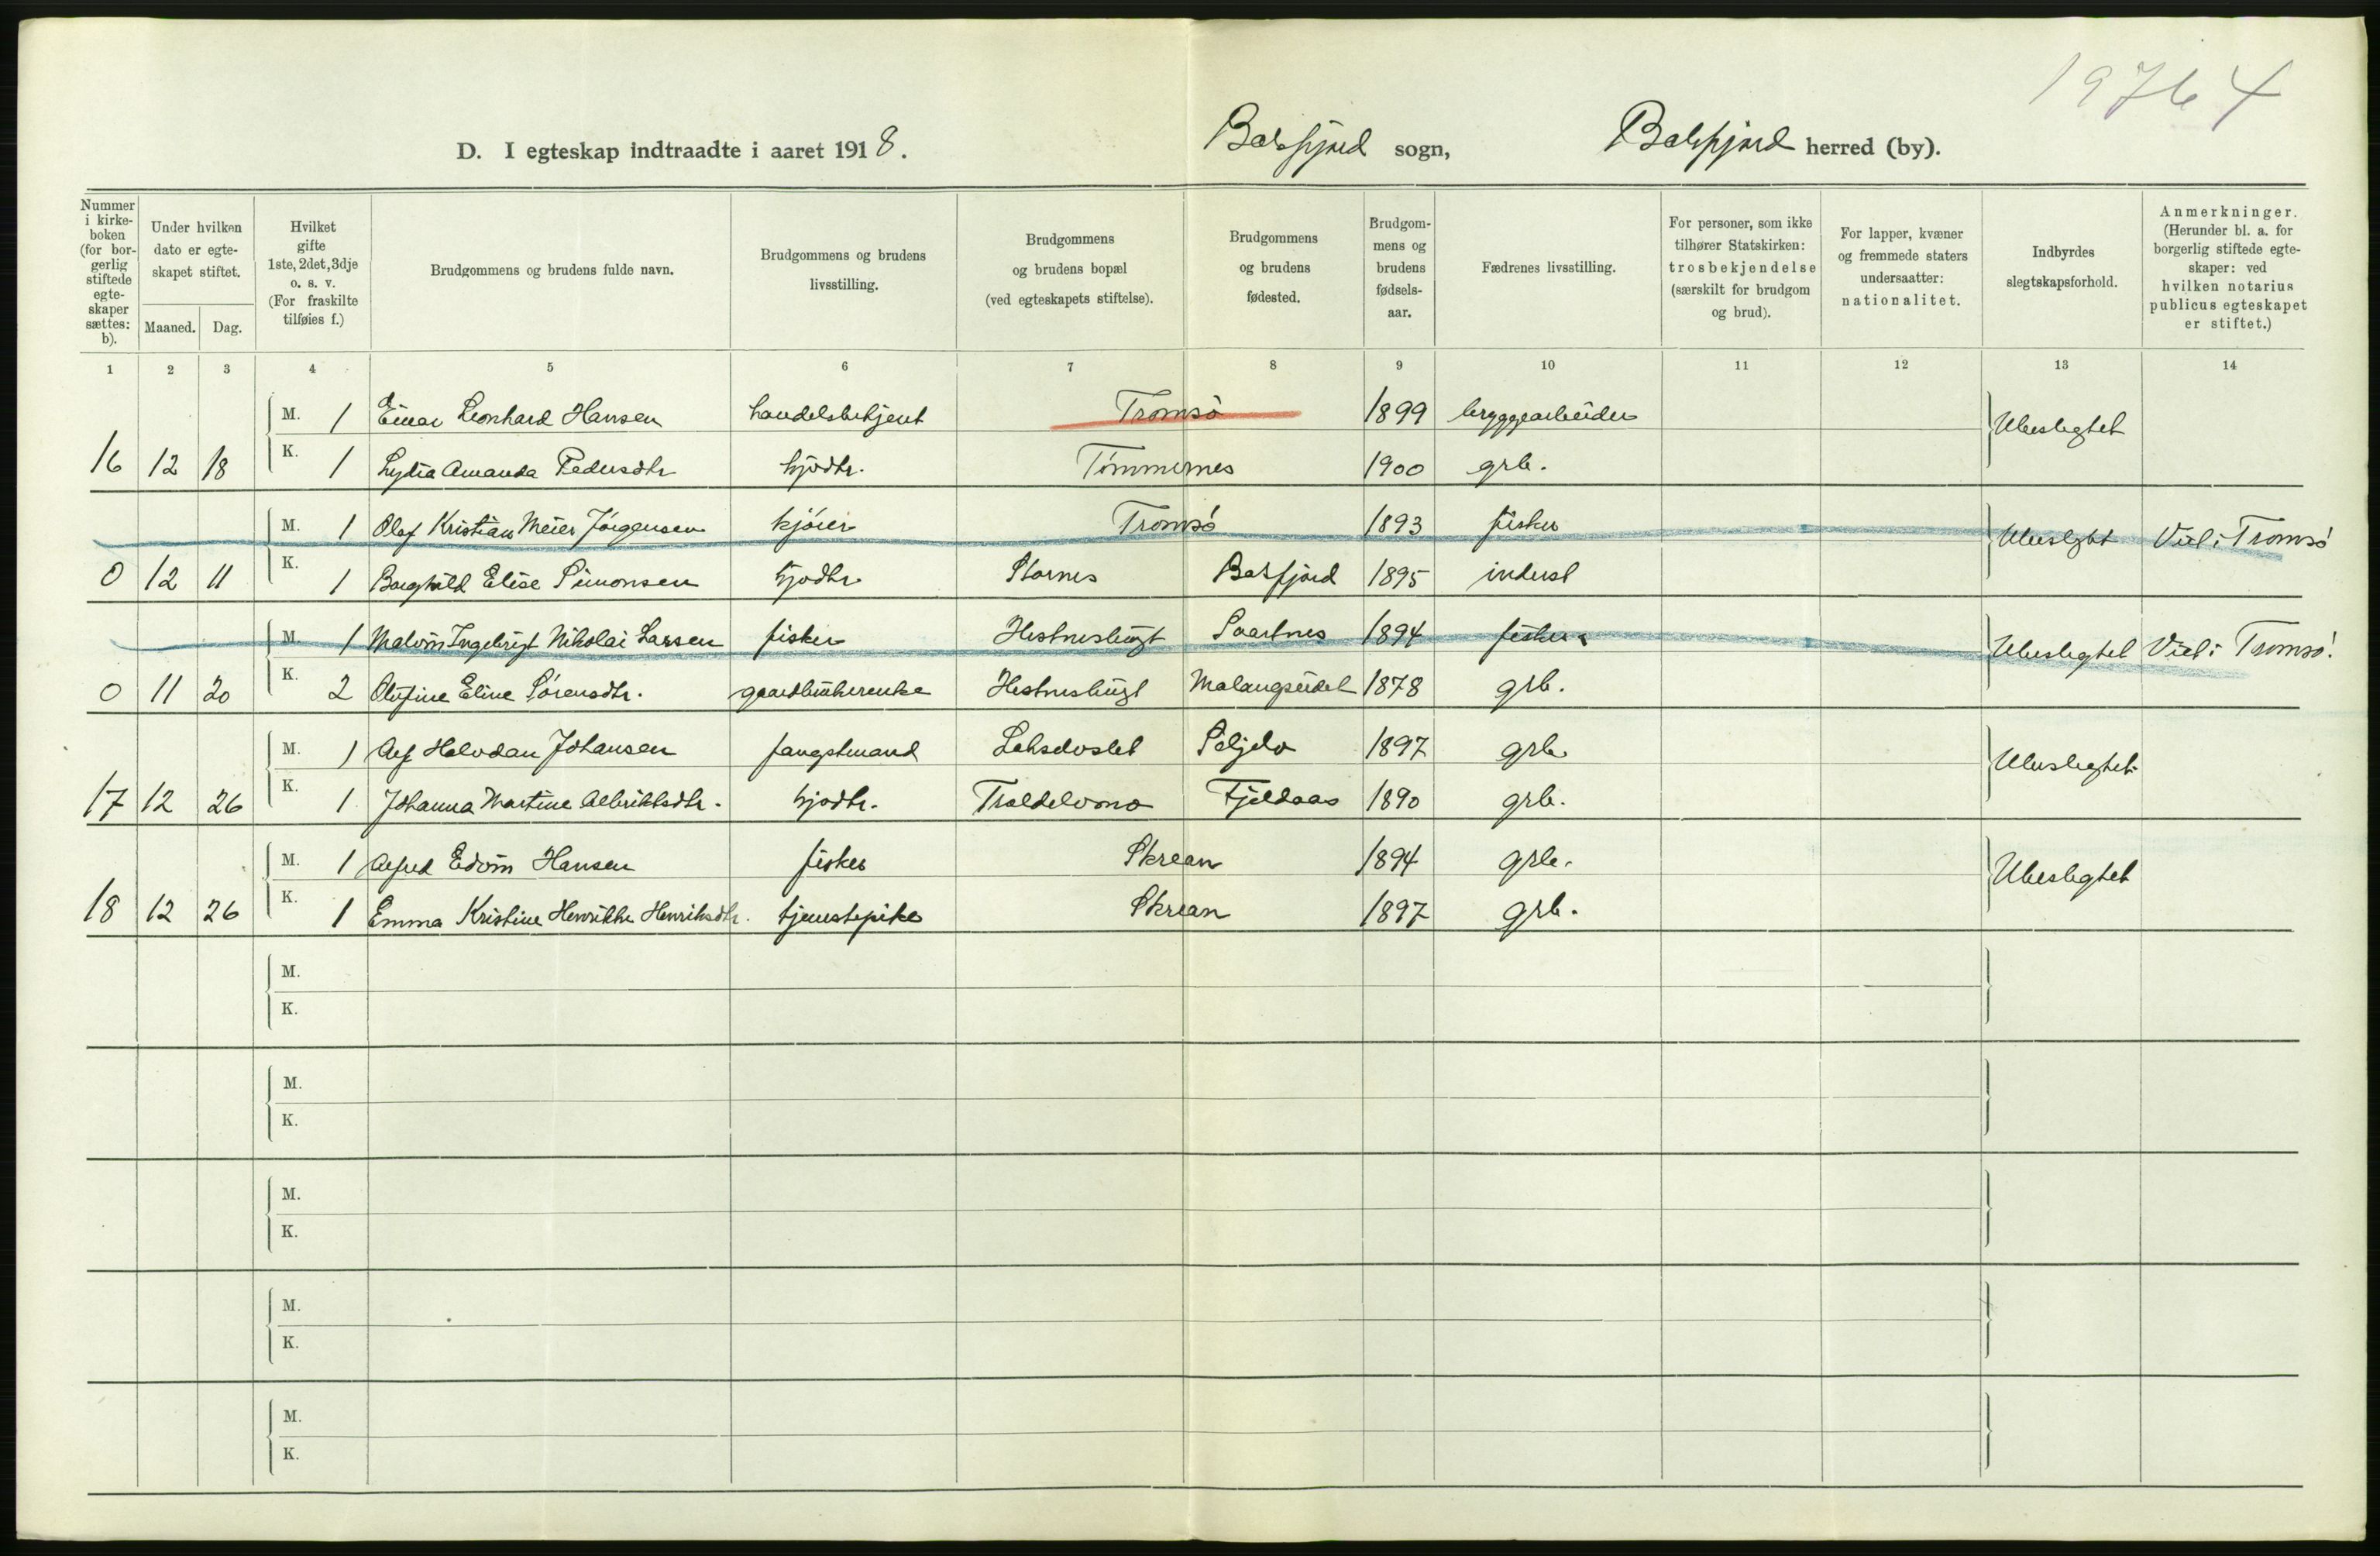 19764
D. I egteskap indtraadte i aaret 1918. Balsfjord sogn, Balsfjord herred (by).
Nummer i kirkeboken (for borgerlig stiftede egteskaper sættes: b).
Under hvilken dato er egteskapet stiftet.
Maaned. Dag.
Hvilket gifte 1ste, 2det, 3dje o. s. v. (For fraskilte tilføies f.)
Brudgommens og brudens fulde navn.
Brudgommens og brudens livsstilling.
Brudgommens og brudens bopæl (ved egteskapets stiftelse).
Brudgommens og brudens fødested.
Brudgommens og brudens fødselsaar.
Fædrenes livsstilling.
For personer, som ikke tilhører Statskirken: trosbekjendelse (særskilt for brudgom og brud).
For lapper, kvæner og fremmede staters undersaatter: nationalitet.
Indbyrdes slegtskapsforhold.
Anmerkninger. (Herunder bl. a. for borgerlig stiftede egteskaper: ved hvilken notarius publicus egteskapet er stiftet.)
1 2 3 4 5 6 7 8 9 10 11 12 13 14
M. 1 Einar Leonhard Hansen handelsbetjent Tromsö 1899 bryggearbeider Ubeslegtet
16 12 18 K. 1 Lydia Amanda Pedersdtr hjdtr. Tömmernes 1900 grb.
M. 1 Olaf Kristian Meier Jörgensen kjörer Tromsö 1893 fisker Ubeslgtet Viet i Tromsö
0 12 11 K. 1 Borghild Elise Simonsen hjdtr. Stornes Balsfjord 1895 inderst
M. 1 Malvin Ingebrigt Nikolai Larsen fisker Hestnesbugt Svartnes 1894 fisker Ubeslegtet Viet i Tromsö!
0 11 20 K. 2 Olufine Eline Sörensdtr. gaardbrukerenke Hestnesbugt Malangseidet 1878 grb.
M. 1 Alf Halvdan Johansen fangstmand Laksvoslet Seljelv 1897 grb Ubeslegtet
17 12 26 K. 1 Johanna Martine Albriktsdtr. hjdtr. Troldelvmo Fjeldaas 1890 grb.
M. 1 Alfred Edvin Hansen fisker Skrean 1894 grb. Ubeslegtet
18 12 26 K. 1 Emma Kristine Henrikke Henriksdtr. tjenestepike Skrean 1897 grb.
M.
K.
M.
K.
M.
K.
M.
K.
M.
K.